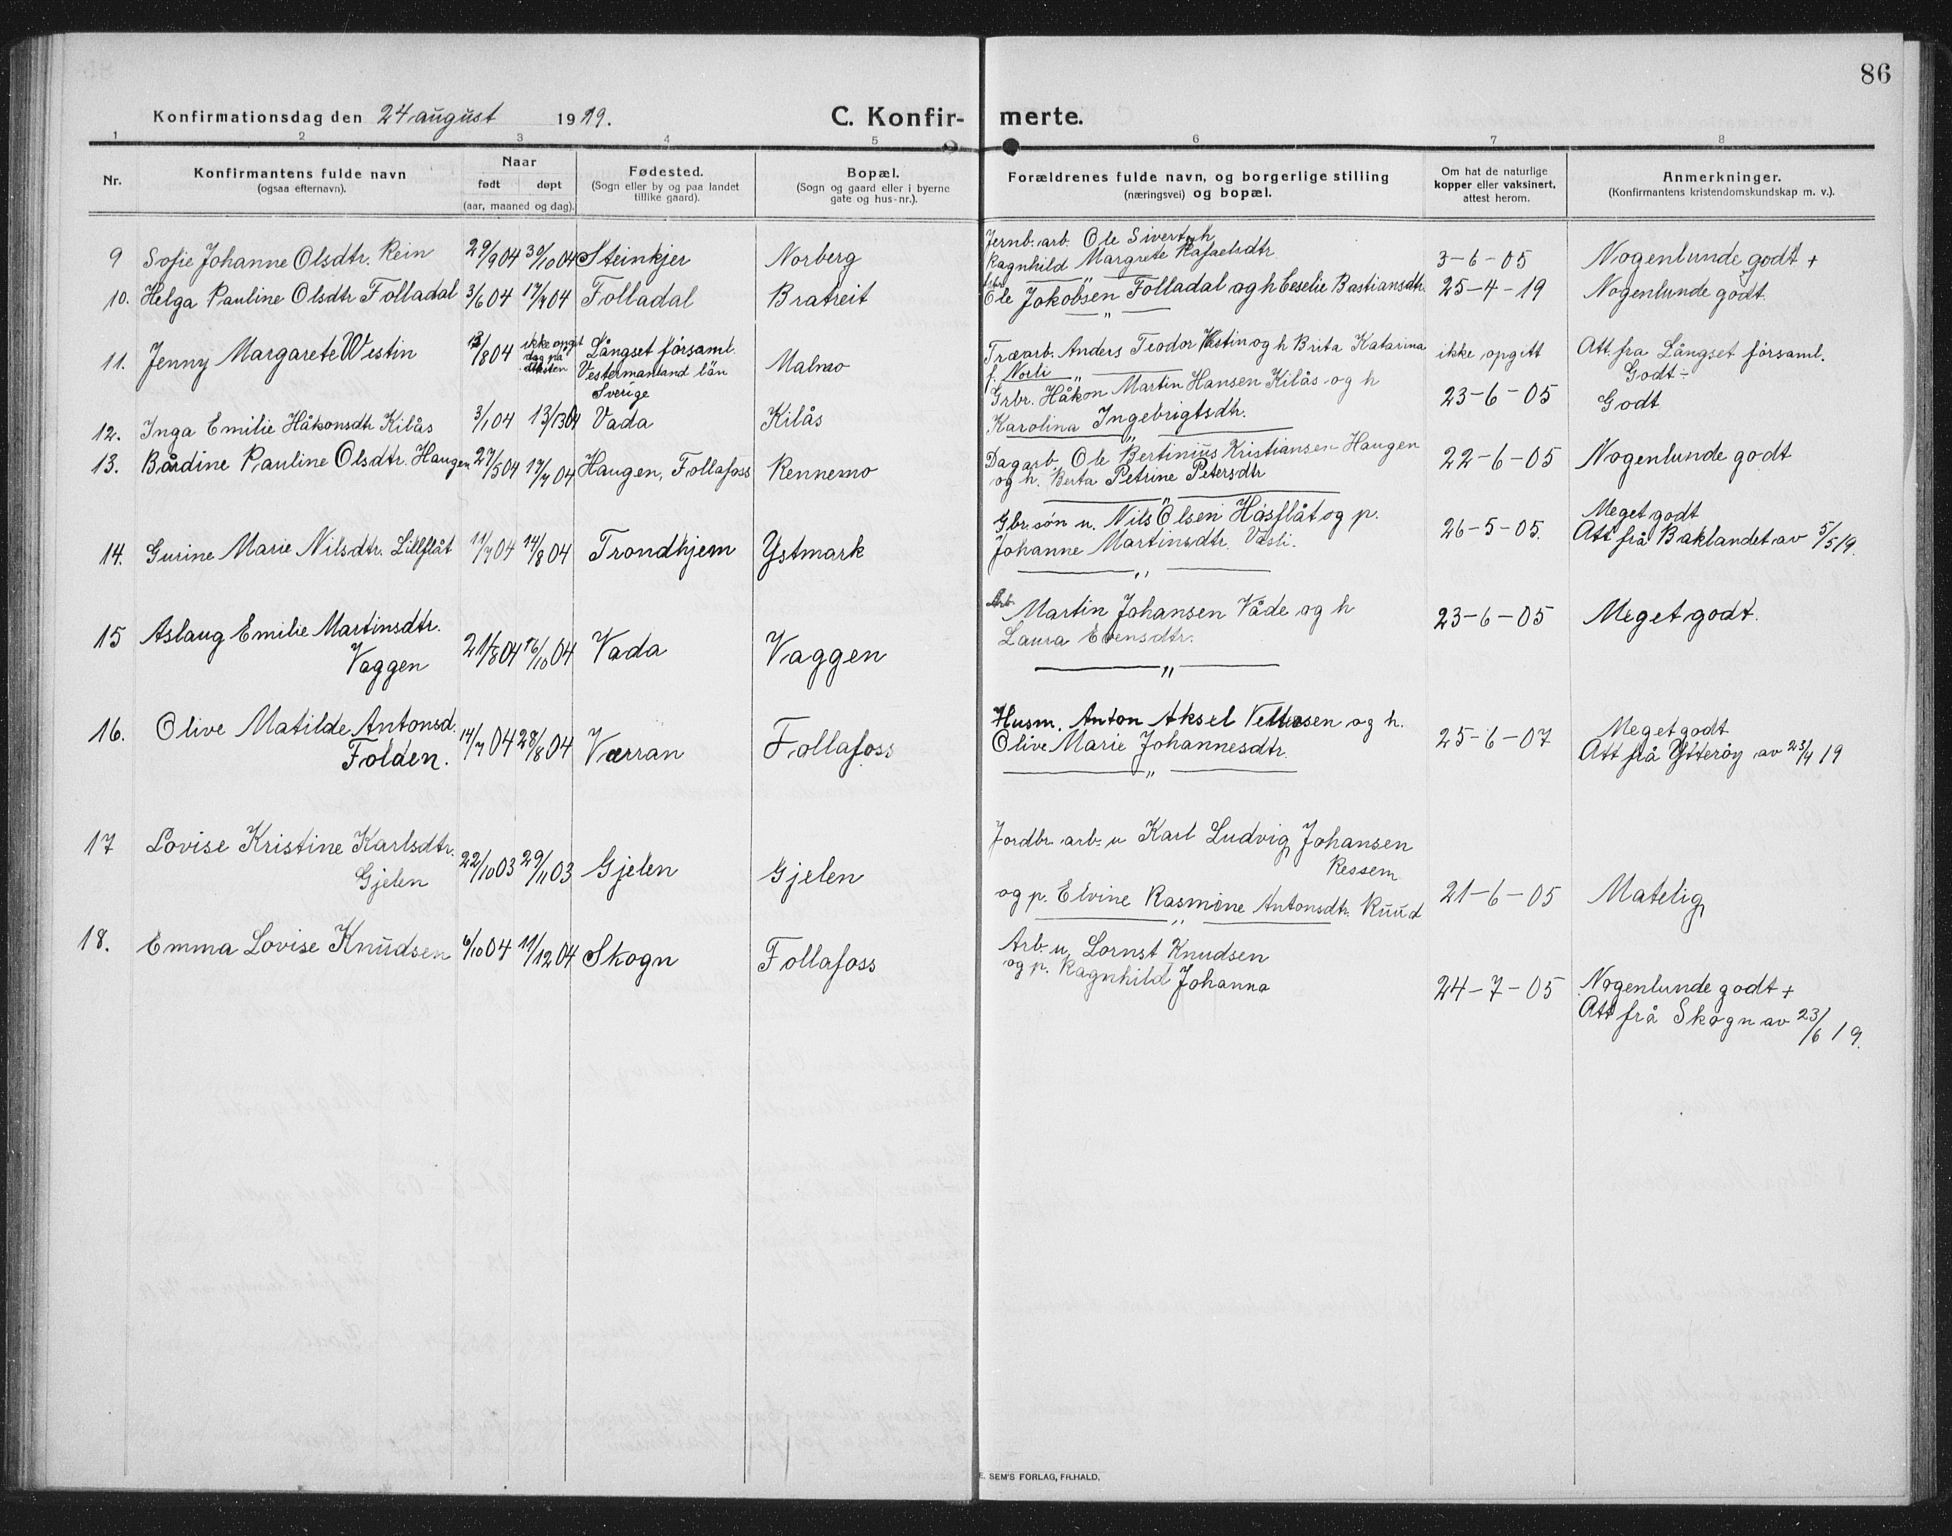 86
Konfirmationsdag den 24 august 1919.
C. Konfirmerte.
1 2 3 4 5 6 7 8
Nr.
Konfirmantens fulde navn
(ogsaa efternavn).
Naar
født døpt
(aar, maaned og dag).
Fødested.
(Sogn eller by og paa landet
tillike gaard).
Bopæl.
(Sogn og gaard eller i byerne
gate og hus-nr.).
Forældrenes fulde navn, og borgerlige stilling
(næringsvei) og bopæl.
Om hat de naturlige
kopper eller vaksinert,
attest herom.
Anmerkninger.
(Konfirmantens kristendomskundskap m. v.).
9 Sofie Johanne Olsdtr. Rein 29/9 04 30/10 04 Steinkjer Norberg
Jernb. arb. Ole Sivert og h
Ragnhild Margrete Rafaelsdtr.
3-6-05 Nogenlunde godt +
10. Helga Pauline Olsdtr Folladal 3/6 04 17/7 04 Folladal Bratreit
Ole Jakobsen Folladal og h Ceselie Bastiansdtr. 25-4-19 Nogenlunde godt.
11. Jenny Margarete Westin /8 04
ikke opgit
dag på
attesten
Långset församl.
Vestermanland län
Sverige
Malmo
Træarb. Anders Teodor Westin og h Brita Katarina
f. Norli
ikke opgitt
Att. fra Långset församl.
Godt -
12. Inga Emilie Håkonsdtr Kilås 3/1 04 13/3 04 Vada Kilås
Grbr. Håkon Martin Hansen Kilås og h
Karolina Ingebrigtsdtr.
23-6-05 Godt
13. Bårdine Pauline Olsdtr. Haugen 27/5 04 17/7 04 Haugen, Follafoss Rennemo
Dagarb. Ole Bertinius Kristiansen Haugen
og h. Berta Petrine Petersdtr
22-6-05 Nogenlunde godt
14. Gurine Marie Nilsdtr. Lillflåt 11/7 04 14/8 04 Trondhjem Ystmark
Gbr. søn u. Nils Olsen Håsflåt og p.
Johanne Martinsdtr. Vasli.
26-5-05.
Meget godt
Att frå Baklandet av 5/5 19.
15 Aslaug Emilie Martinsdtr.
Vaggen
21/8 04 16/10 04 Vada Vaggen
Arb. Martin Johansen Våde og h
Laura Evensdtr.
23-6-05 Meget godt.
16. Olive Matilde Antonsd.
Folden.
14/7 04 28/8 04 Værran Follafoss
Husm. Anton Aksel Vettesen og h.
Olive Marie Johannesdtr.
25-6-07
Meget godt
Att frå Ytterøy av 23/4 19
17 Lovise Kristine Karlsdtr.
Gjelen
22/10 03 29/11 03 Gjelen Gjelen
Jordbr. arb. u Karl Ludvig Johansen
Ressem
og p. Elvine Rasmine Antonsdtr. Ruud
21-6-05 Matelig
18. Emma Lovise Knudsen 6/10 04 11/12 04 Skogn Follafoss
Arb. u Lornst Knudsen
og p. Ragnhild Johanna
24-7-05
Nogenlunde godt +
Att frå Skogn av 23/6 19.
E. SEM'S FORLAG, FR.HALD.